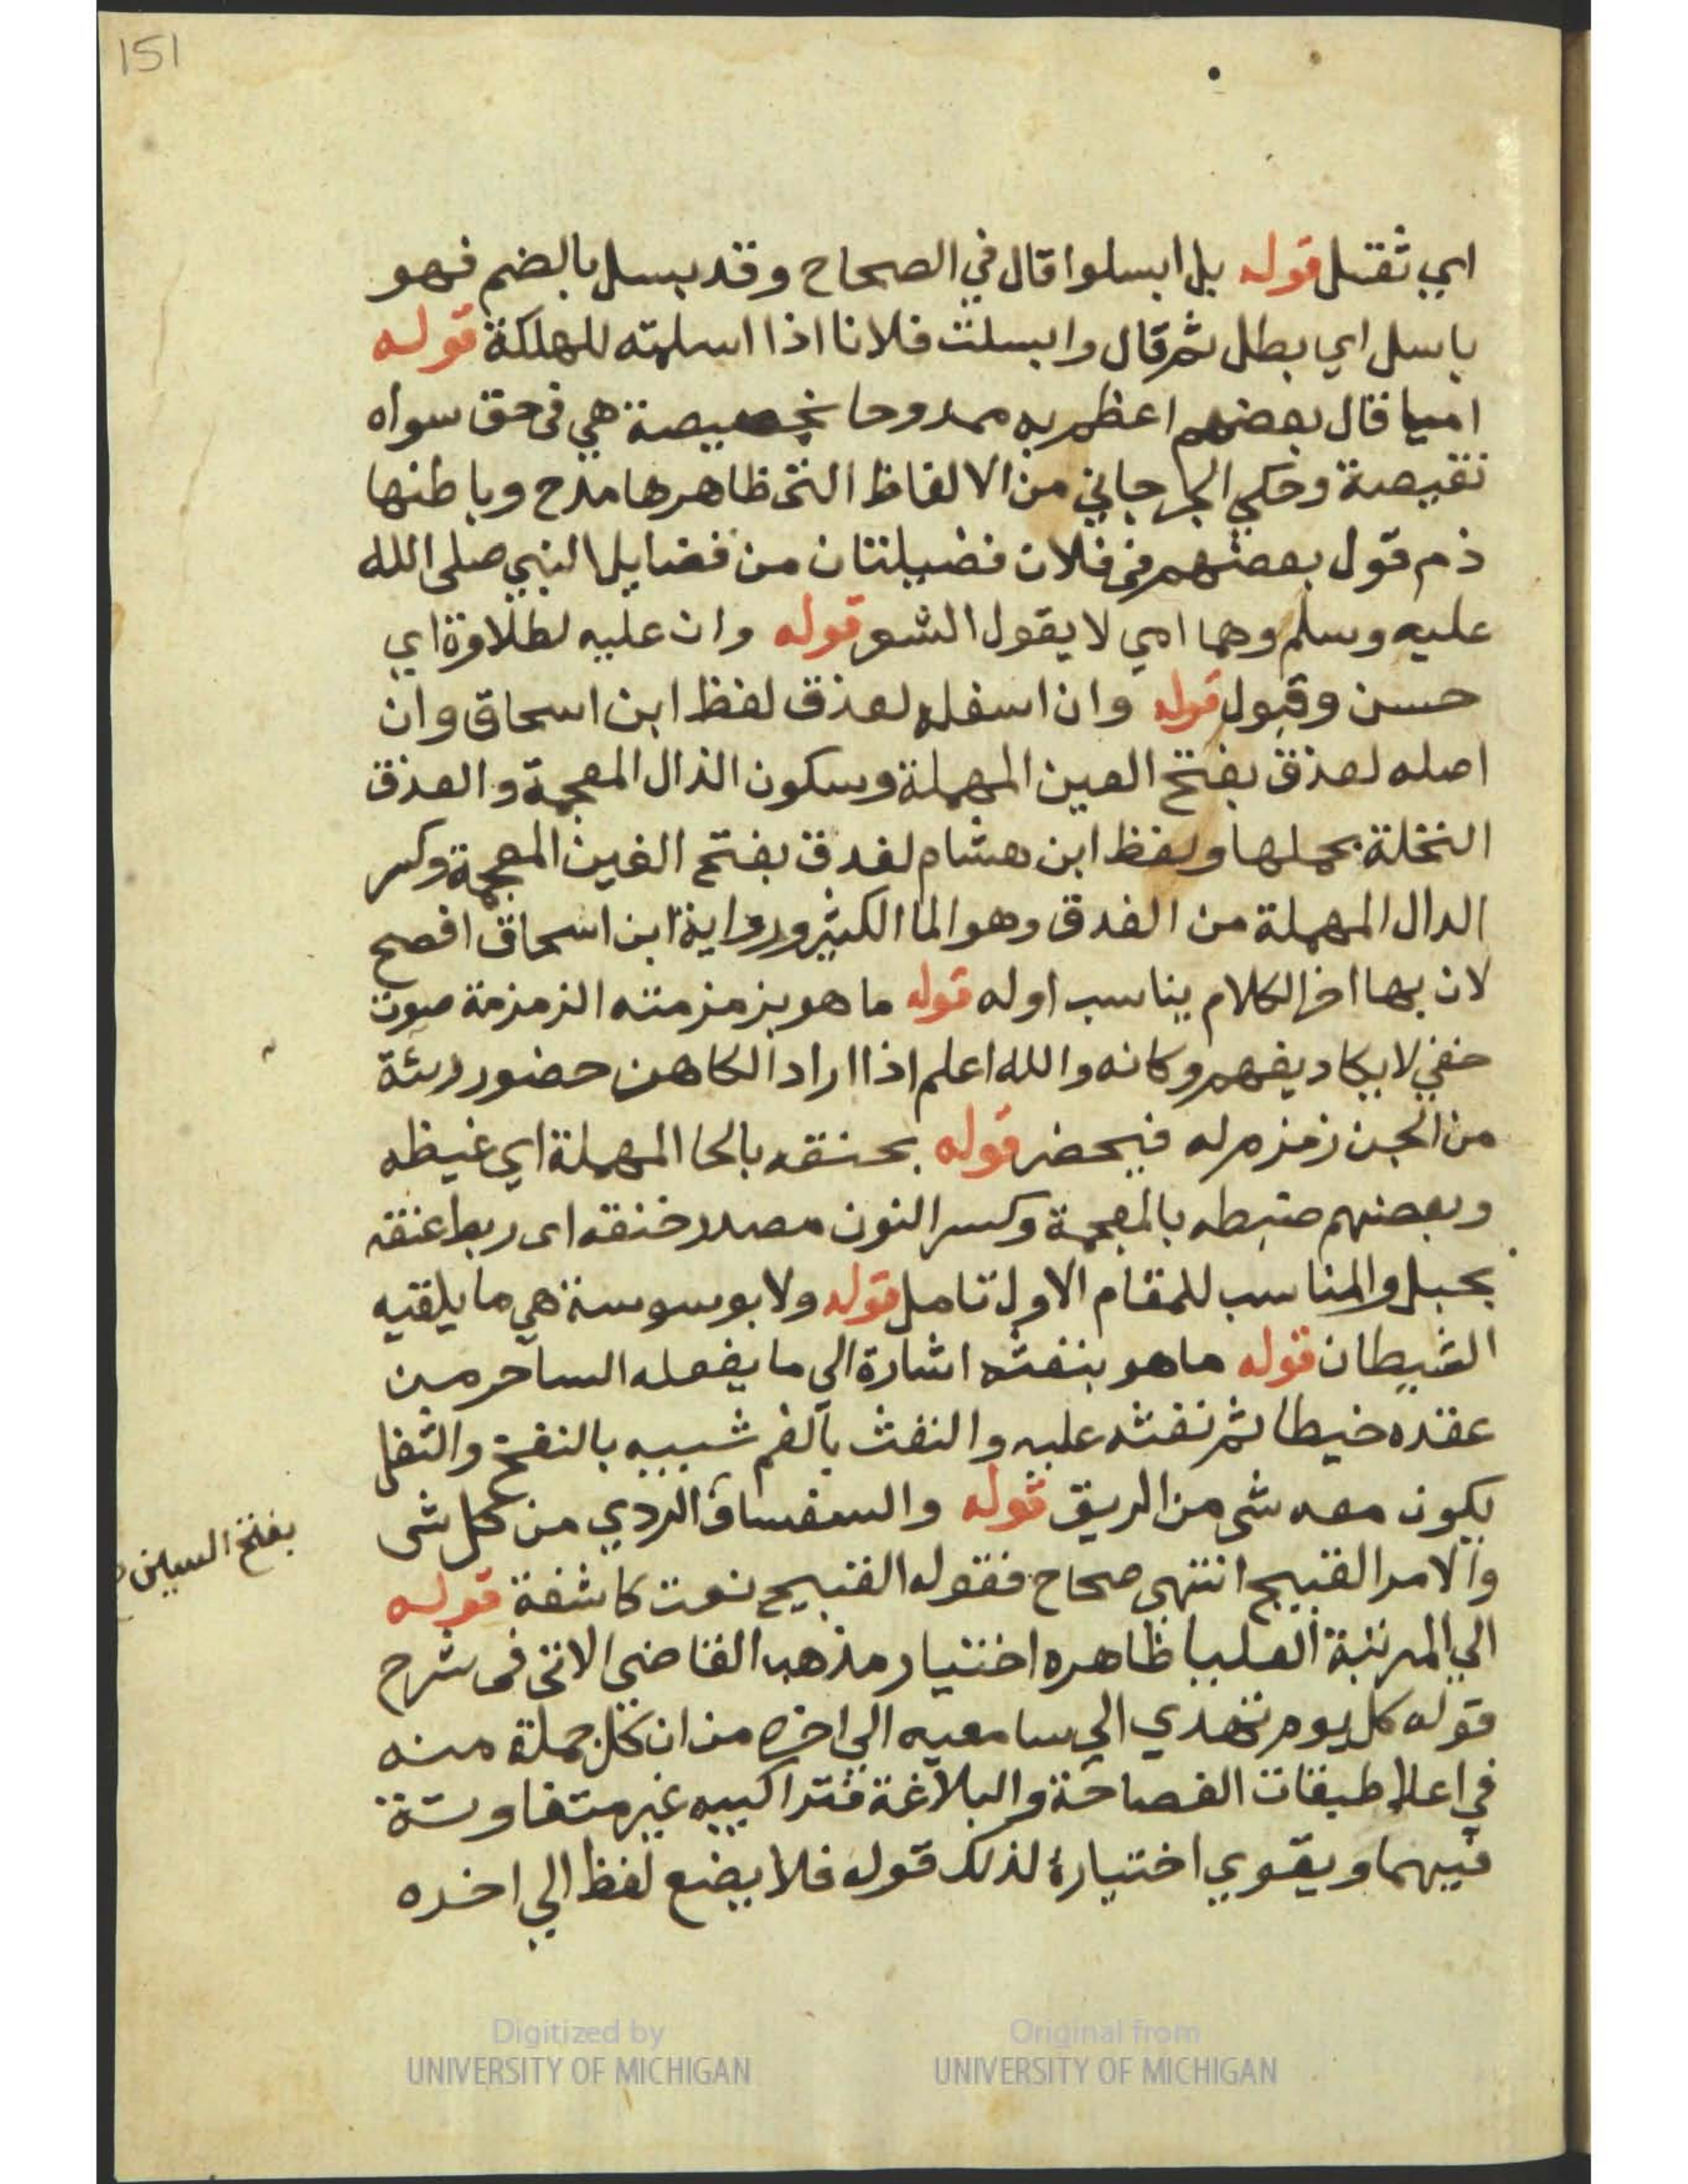 151
اي ثقتل قوله بل ابسلوا قال في الصحاح وقد بسل بالضم فهو
باسل اي بطل ثم قال وابسلت فلانا اذا اسلمته للهلكة قوله
اميا قال بعضهم اعظم به ممدوحا بخصيصة هي في حق سواه
نقيصة وحكي الجرجاني من الالفاظ التى ظاهرها مدح وباطنها
ذم قول بعضهم فى فلان فضيلتان من فضايل النبي صلى الله
عليه وسلم وهما امي لا يقول الشعر قوله وان عليه لطلاوة اي
حسن وقبول قوله وان اسفله لعذق لفظ ابن اسحاق وان
اصله لعذق بفتح العين المهملة وسكون الذال المعجمة والعذق
النخلة بحملها ولفظ ابن هشام لغدق بفتح الغين المعجمة وكسر
الدال المهملة من الغدق وهو الما الكثير ورواية ابن اسحاق افصح
لان بها اخر الكلام يناسب اوله قوله ما هو بزمزمته الزمزمة صوت
خفي لا يكاد يفهم وكانه والله اعلم اذا اراد الكاهن حضور رئة
من الجن زمزم له فيحضر قوله بحنقه بالحا المهملة اي غيظه
وبعضهم ضبطه بالمعجمة وكسر النون مصدر خنقه اى ربط عنقه
بحبل والمناسب للمقام الاول تامل قوله ولا بوسوسة هي ما يلقيه
الشيطان قوله ما هو بنفثه اشارة الي ما يفعله الساحر من
عقده خيطا ثم نفثه عليه والنفث بالفم شبيه بالنفخ والتفل
يكون معه شى من الريق قوله والسفساف الردي من كل شى
بفتح السين
والامر القبيح انتهى صحاح فقوله القبيح نعت كاشفة قوله
الي المرتبة العليا ظاهره اختيار مذهب القاضي الاتى فى شرح
قوله كل يوم تهدي الي سامعيه الي اخره من ان كل جملة منه
في اعلا طبقات الفصاحة والبلاغة فتراكيبه غير متفاوتة
فيهما ويقوي اختيارة لذلك قوله فلا يضع لفظ الي اخره
Digitized by
UNIVERSITY OF MICHIGAN
Original from
UNIVERSITY OF MICHIGAN